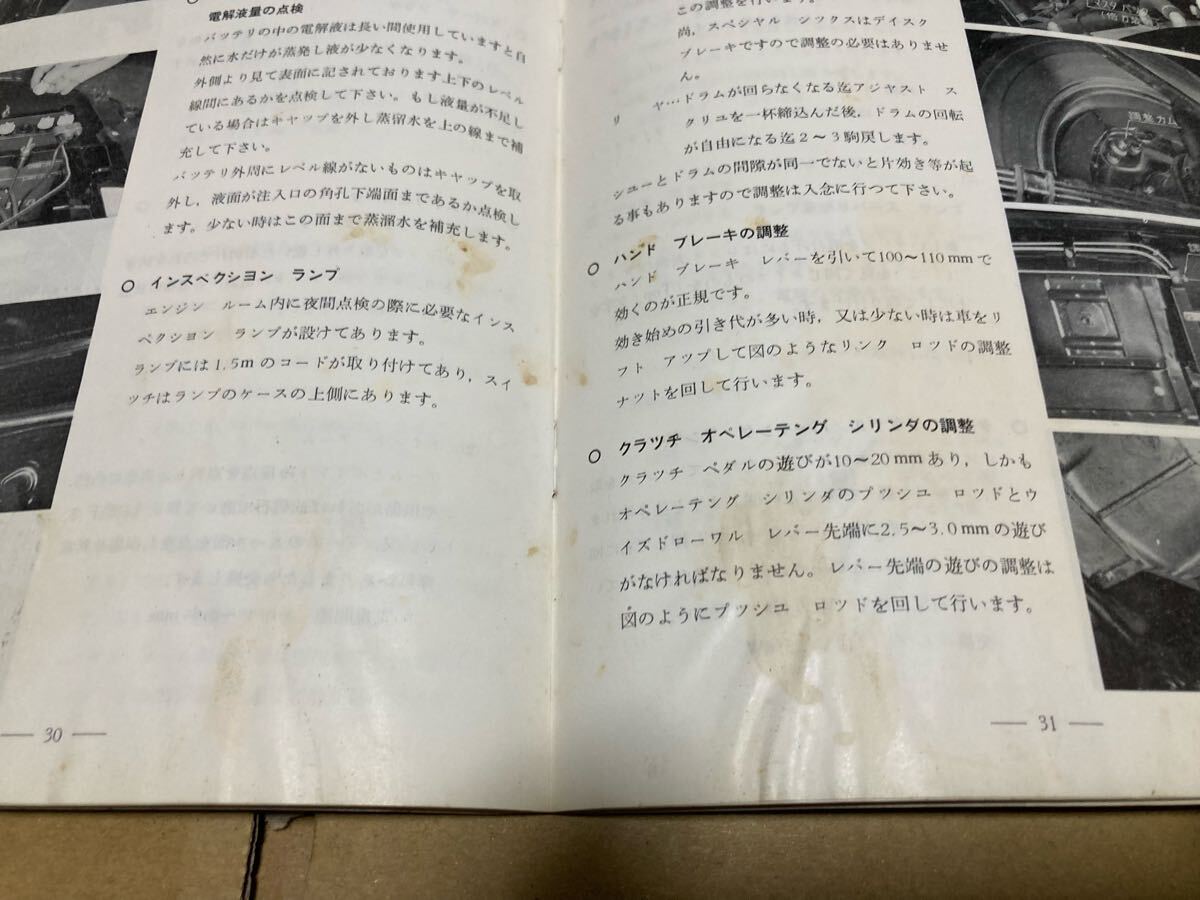 電解液量の点検
バッテリの中の電解液は長い間使用していますと自
然に水だけが蒸発し液が少なくなります。
外側より見て表面に記されております上下のレベル
線間にあるかを点検して下さい。もし液量が不足し
ている場合はキャップを外し蒸留水を上の線まで補
充して下さい。
バッテリ外周にレベル線がないものはキャップを取
外し，液面が注入口の角孔下端面まであるか点検し
ます。少ない時はこの面まで蒸溜水を補充します。
○ インスペクション ランプ
エンジン ルーム内に夜間点検の際に必要なインス
ペクション ランプが設けてあります。
ランプには1.5mのコードが取り付けてあり，スイ
ッチはランプのケースの上側にあります。
— 30 —
この調整を行います。
尚，スペシャル シックスはディスク
ブレーキですので調整の必要はありませ
ん。
ヤ…ドラムが回らなくなる迄アジャスト ス
リ クリユを一杯締込んだ後，ドラムの回転
が自由になる迄2～3駒戻します。
シユーとドラムの間隙が同一でないと片効き等が起
る事もありますので調整は入念に行つて下さい。
○ ハンド ブレーキの調整
ハンド ブレーキ レバーを引いて100～110mmで
効くのが正規です。
効き始めの引き代が多い時，又は少ない時は車をリ
フト アップして図のようなリンク ロツドの調整
ナツトを回して行います。
○ クラツチ オペレーテング シリンダの調整
クラツチ ペダルの遊びが10～20mmあり，しかも
オペレーテング シリンダのプツシユ ロツドとウ
イズドローワル レバー先端に2.5～3.0mmの遊び
がなければなりません。レバー先端の遊びの調整は
図のようにプツシユ ロツドを回して行います。
— 31 —
調整カム